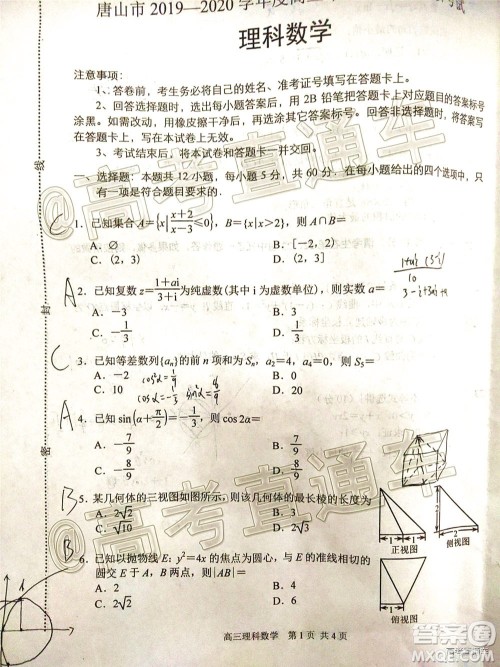 唐山市 2019—2020 学年度高三
考试
理科数学
注意事项:
1、答卷前,考生务必将自己的姓名、准考证号填写在答题卡上。
2、回答选择题时,选出每小题答案后,用 2B 铅笔把答题卡上对应题目的答案标号
涂黑。如需改动,用橡皮擦干净后,再选涂其它答案标号。回答非选择题时,将答案写
在答题卡上,写在本试卷上无效。
3、考试结束后,将本试卷和答题卡一并交回。
一、选择题:本题共 12 小题,每小题 5 分,共 60 分.在每小题给出的四个选项中,只
有一项是符合题目要求的.
C 1. 已知集合 A={x|(x+2)/(x-3)≤0},B={x|x>2},则 A∩B=
A. ∅ B. [-2,2)
C. (2,3) D. (2,3]
A 2. 已知复数 z=(1+ai)/(3+i) 为纯虚数(其中 i 为虚数单位),则实数 a=
A. -3 B. 3
C. -1/3 D. 1/3
C 3. 已知等差数列{aₙ}的前 n 项和为 Sₙ,a₂=4,a₄=0,则 S₅=
A. -2 B. 0
C. 10 D. 20
A 4. 已知 sin(α+π/2)=-1/3,则 cos2α=
A. -7/9 B. 7/9
C. -8/9 D. 8/9
B 5. 某几何体的三视图如图所示,则该几何体的最长棱的长度为
A. 2√2 B. 3
C. √10 D. 2√3
1 1
正视图
2
2
侧视图
俯视图
B 6. 已知以抛物线 E:y²=4x 的焦点为圆心,与 E 的准线相切的
圆交 E 于 A,B 两点,则 |AB|=
A. 2 B. 4
C. 2√2 D. 6
高三理科数学 第 1 页 共 4 页
线
封
密
@高考直通车
@高考直通车
答案圈